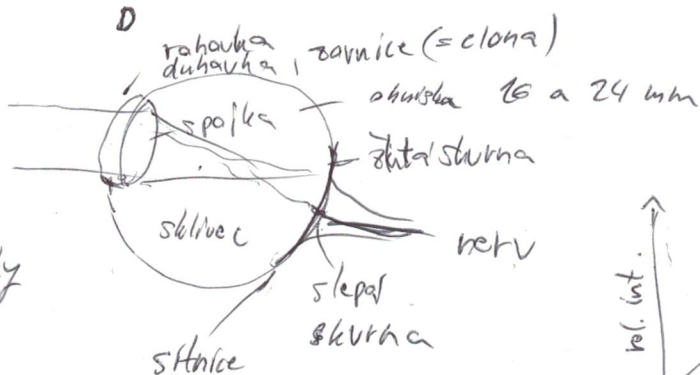 D
rohovka
duhovka, zornice (= clona)
spojka
ohniska 16 a 24 mm
žlutá skvrna
sklivec
nerv
slepá
skvrna
sítnice
rel. int.
y